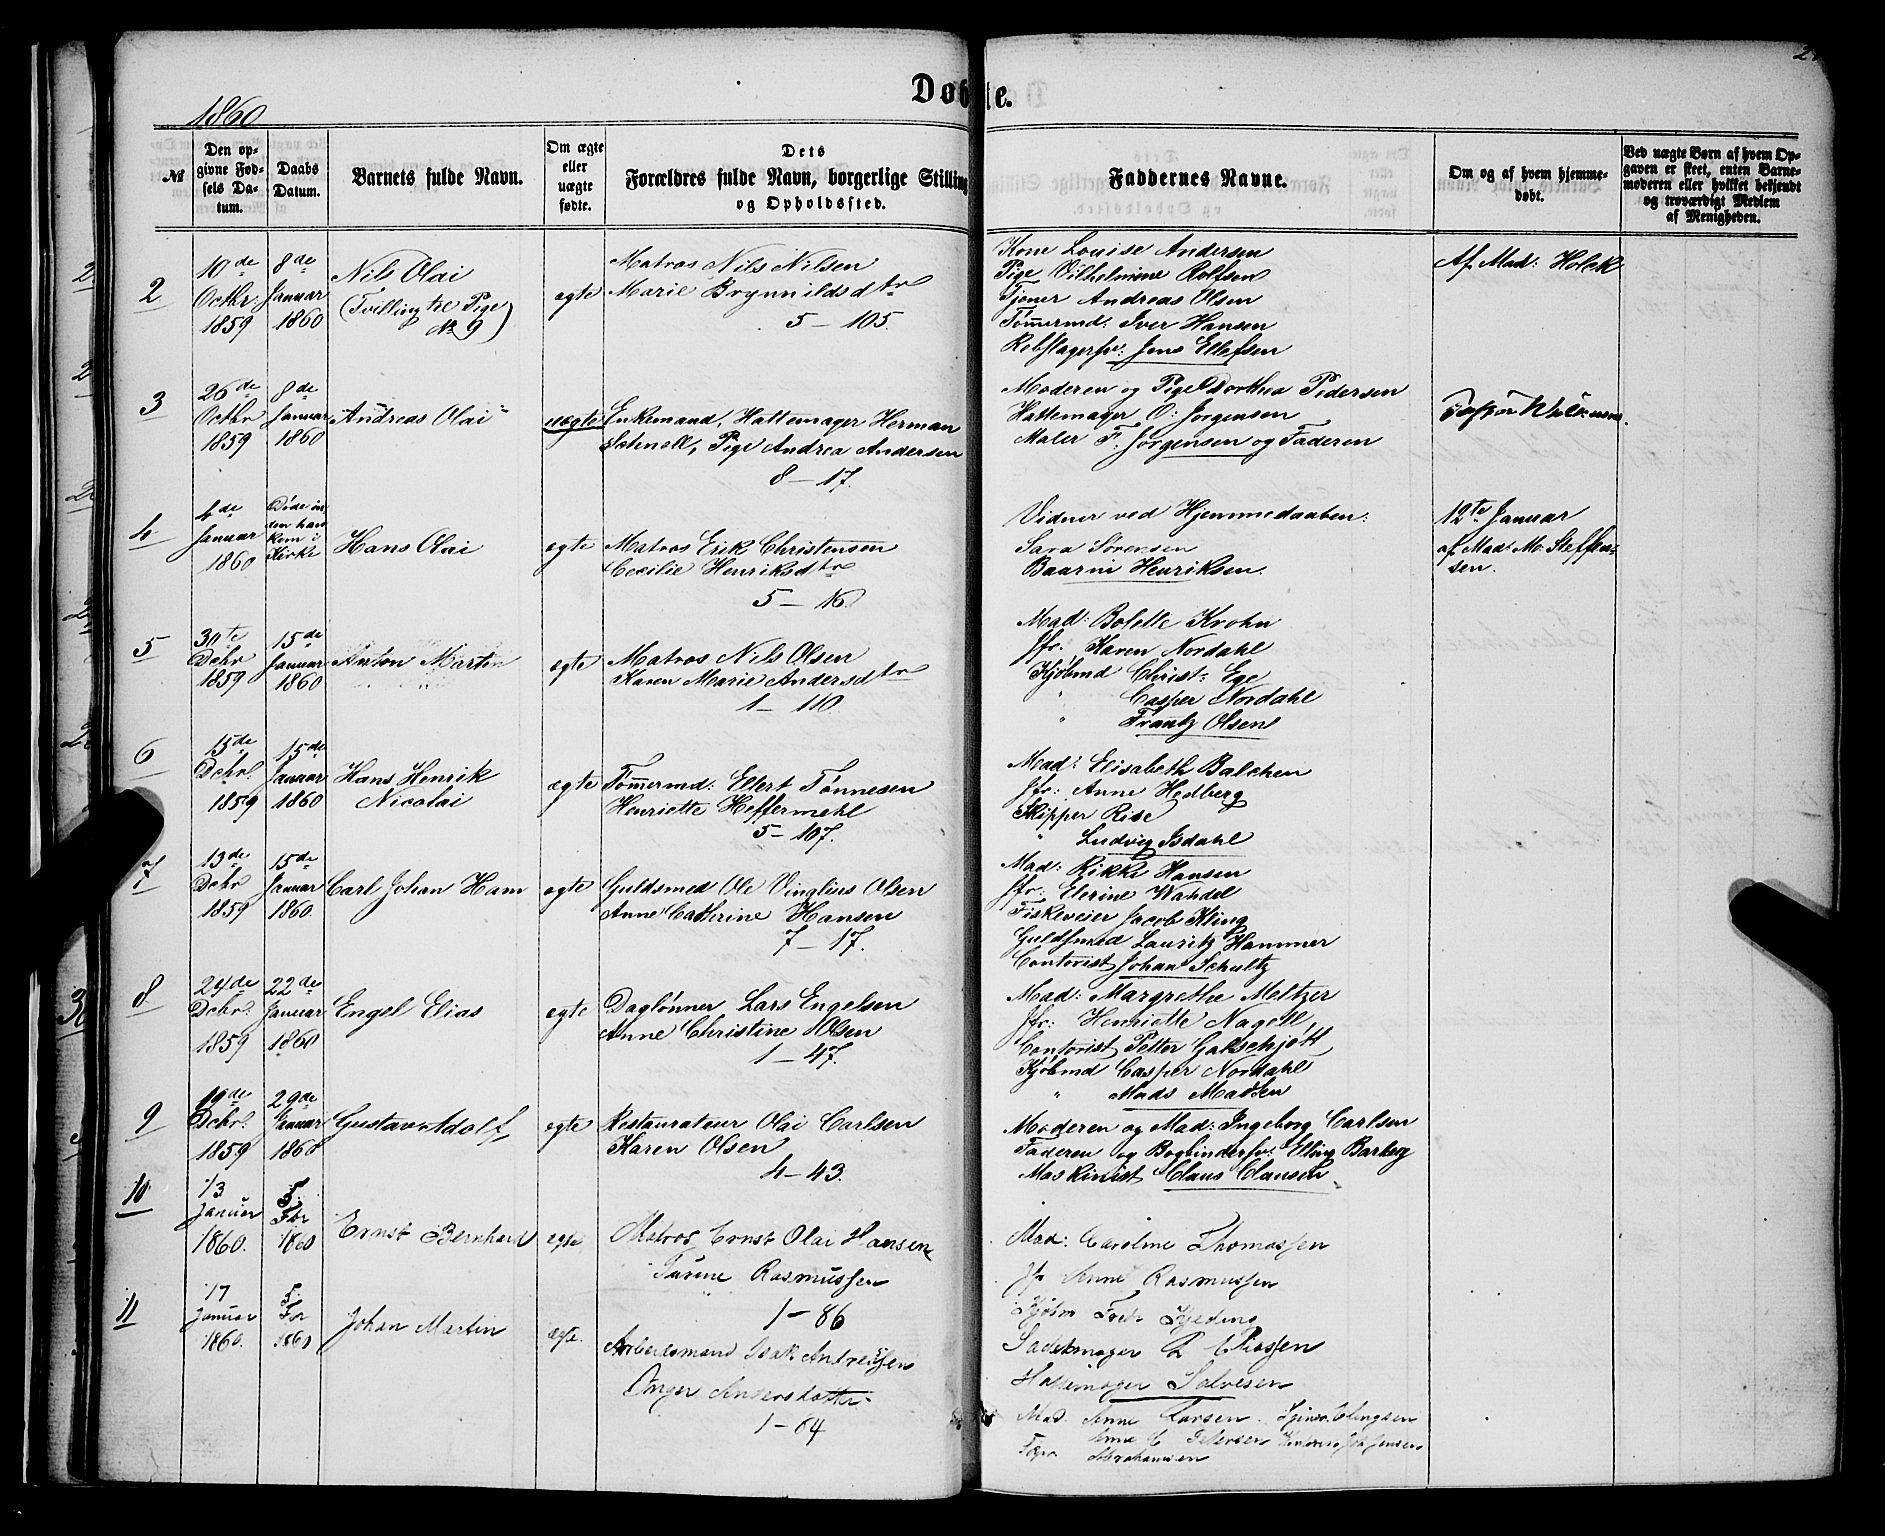 Døbte.
1860
No
Den opgivne Fødsels Datum.
Daabs Datum.
Barnets fulde Navn.
Om ægte eller uægte fødte.
Dets Forældres fulde Navn, borgerlige Stilling og Opholdssted.
Faddernes Navne.
Om og af hvem hjemmedøbt.
Ved uægte Børn af hvem Opgaven er skeet, enten Barnemoderen eller hvilket bekjendt og troværdigt Medlem af Menigheden.
2
10de Octbr: 1859
8de Januar 1860
Nils Olai
(Tvilling til Pige
No 9)
ægte
Matros Nils Nilsen
Marie Brynnildsdtr
5 - 105.
Kone Louise Andersen
Pige Vilhelmine Rolfsen
Tjener Andreas Olsen
Tømermd: Iver Hansen
Rebslagersv: Jens Ellefsen
Af Mad: Holck
3
26de Octbr 1859
8de Januar 1860
Andreas Olai
uægte
Enkemand, Hattemager Herman
Schnell, Pige Andrea Andersen
8 - 17.
Moderen og Pige Dorthea Pedersen
Hattemager O: Jørgensen
Maler F: Jørgensen og Faderen
4
4de Januar 1860
Døde inden han kom i Kirke
Hans Olai
ægte
Matros Erik Christensen
Cecilie Henriksdtr
5 - 16
Vidner ved Hjemmedaaben:
Sara Sørensen
Baarni Henriksen.
12te Januar
af Mad: M. Steffensen.
5
30te Debr 1859
15de Januar 1860
Anton Martin
ægte
Matros Nils Olsen
Karen Marie Andersdtr
1 - 110.
Mad: Bolette Krohn
Jfr: Karen Nordahl
Kjøbmd Christ: Ege
" Casper Nordahl
" Frantz Olsen
6
15de Debr. 1859
15de Januar 1860
Hans Henrik
Nicolai
ægte
Tømermd: Ellert Tønnesen
Henriette Heffermehl
5 - 107.
Mad: Elisabeth Balchen
Jfr: Anne Hedberg
Skipper Rise
" Ludvig Isdahl
7
13de Debr 1859
15de Januar 1860.
Carl Johan Ham
ægte
Guldsmed Ole Vinglius Olsen
Anne Cathrine Hansen
7 - 17.
Mad: Rikke Hansen
Jfr: Elerine Wandel
Fiskeveier Jacob Kling
Guldsmed Lauritz Hammer
Contorist Johan Schultz
8
24de Debr. 1859
22de Januar 1860
Engel Elias
ægte
Daglønner Lars Engelsen
Anne Christine Olsen
1 - 47.
Mad: Margrethe Meltzer
Jfr: Henriette Nagell
Contorist Petter Galschjøtt
Kjøbmd Casper Nordahl
" Mads Madsen
9
19de Debr. 1859
29de Januar 1860
Gustav Adolf
ægte
Restaurateur Olai Carlsen
Karen Olsen
4 - 43.
Moderen og Mad: Ingeborg Carlsen
Faderen og Bogbindersv: Elling Barberg
Maskinist Claus Clausen
10
13 Januer 1860.
5 Fbr 1860
Ernst Bernhard
ægte
Matros Ernst Olai Hansen
Rasmussen
1 - 86
Mad: Caroline Thomassen
Jfr Anne Rasmussen
Kjøbm Fred: Kjelding
Hattemager Salvesen
11
17 Januar 1860.
5 Fbr 1860
Johan Martin
ægte.
Arbeidsmand Isak Andresen
Inger Andersdatter
1 - 64
Mad. Anne Larsen
Anne C Petersen
Abrahamsen